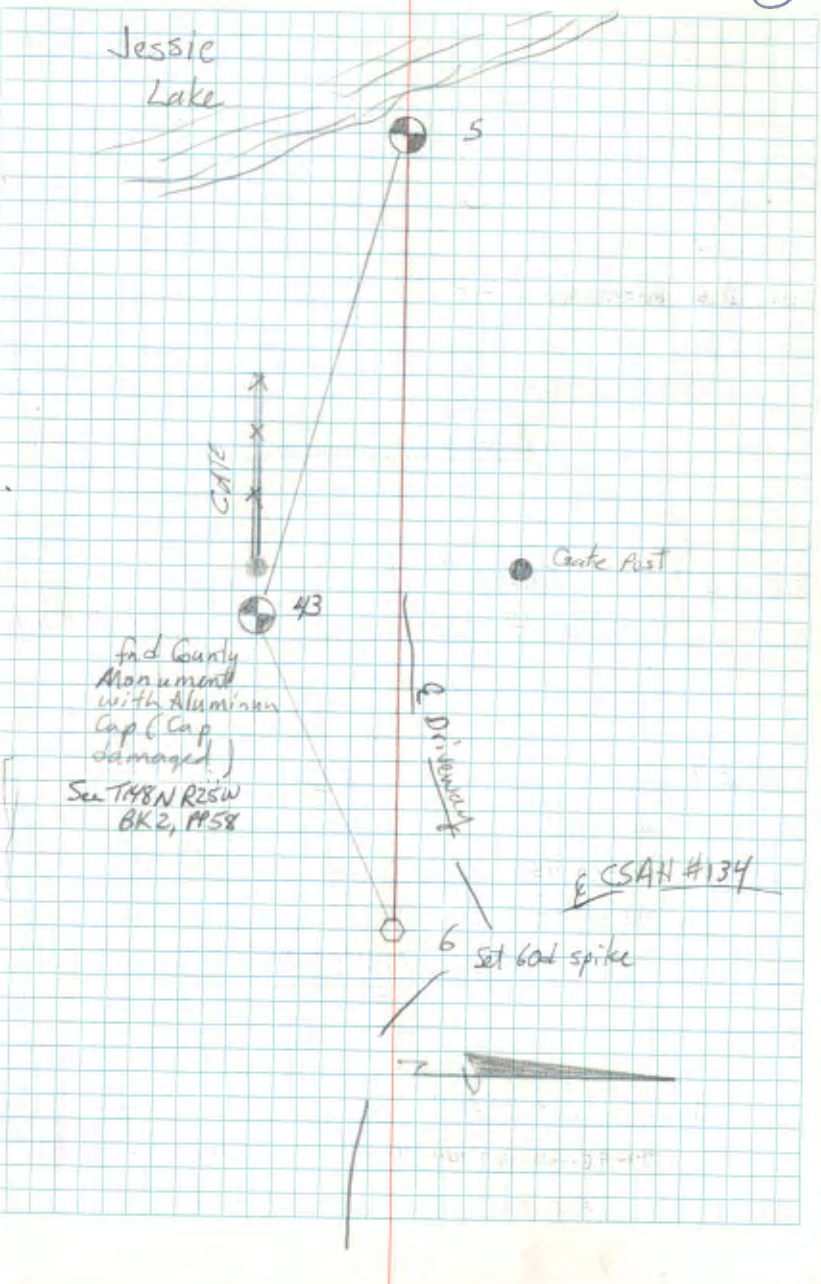 Jessie
Lake
5
Gate
Gate Post
43
fnd County
Monument
with Aluminum
Cap (Cap
damaged)
See T148N R25W
BK 2, PP58
℄ Driveway
℄ CSAH #134
6
Set 60d spike
N